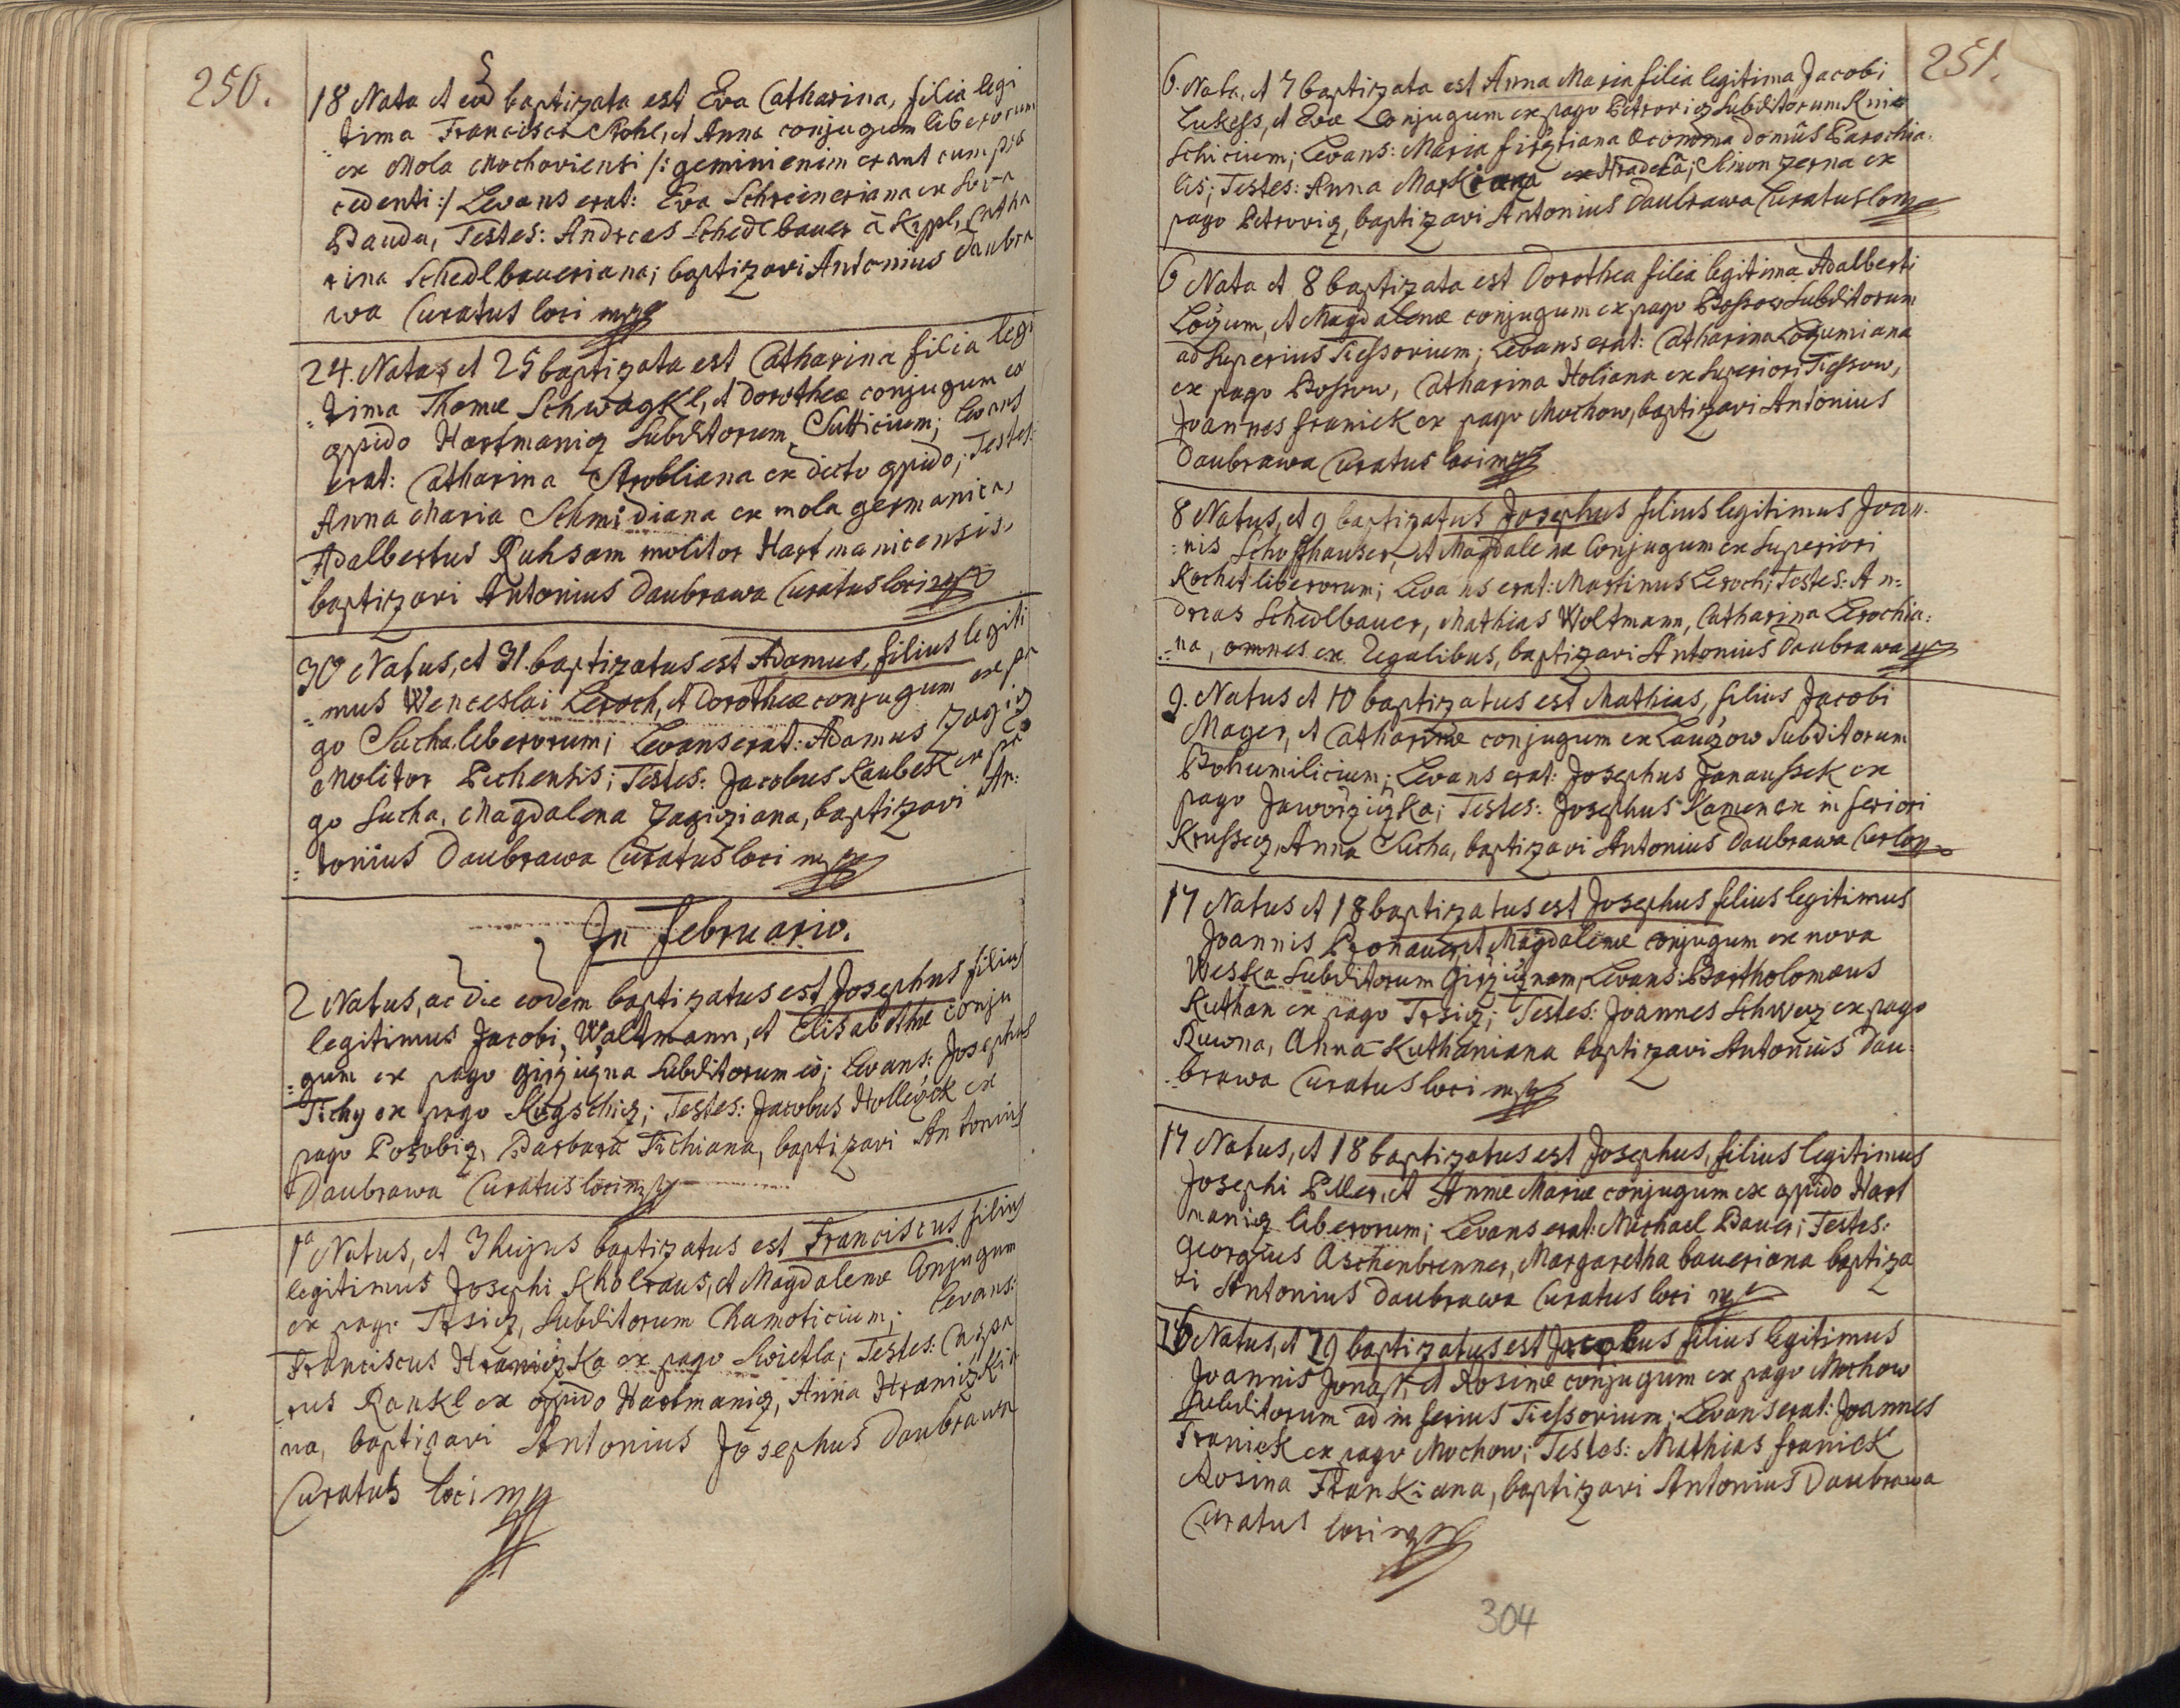 250.
18 Nata et eod baptizata est Eva Catharina, filia legi
tima Francisci Rohl, et Anna conjugum liberorum
ex Mola Mochoviensi /: gemini enim erant cum præ
cedenti :/ Levans erat: Eva Schreineriana ex
Bauda, Testes: Andreas Schedlbauer à Keppl, Catha
rina Schedlbaueriana; baptizavi Antonius Daubra
wa Curatus loci mp
24. Nata, et 25 baptizata est Catharina filia legi
tima Thomæ Schwagkl, et Dorotheæ conjugum ex
oppido Hartmaniz Subditorum Sutticium; levans
erat: Catharina Strobliana ex dicto oppido; Testes:
Anna Maria Schmidiana ex mola germanica,
Adalbertus Ruhsam molitor Hartmanicensis,
baptizavi Antonius Daubrawa Curatus loci mp
30 Natus, et 31. baptizatus est Adamus, filius legiti
mus Wenceslai Leroch, et Dorotheæ conjugum ex pa
go Sucha liberorum; Levans erat: Adamus Zagiz
Molitor Pichensis; Testes: Jacobus Kaubek ex pa
go Sucha, Magdalena Zagiziana, baptizavi An:
tonius Daubrawa Curatus loci mp
In Februario.
2 Natus, ac die eodem baptizatus est Josephus filius
legitimus Jacobi, Waltmann, et Elisabethæ conju
gum ex pago Girziczna Subditorum eò; Levans: Josephus
Tichy ex pago Kogschiz; Testes: Jacobus Holleczek ex
pago Posobiz, Barbara Tichiana, baptizavi Antonius
Daubrawa Curatus loci mp
1ª Natus, et 3 hujus baptizatus est Franciscus filius
legitimus Josephi Kholraus, et Magdalenæ Conjugum
ex pago Trsiz, Subditorum Chamoticium; Levans:
Franciscus Hraniczka ex pago Swietla; Testes: Caspa
rus Rankl ex oppido Hartmaniz, Anna Hraniczkia
na, baptizavi Antonius Josephus Daubrawa
Curatus loci mp
251.
6. Nata, et 7 baptizata est Anna Maria filia legitima Jacobi
Lukess, et Evæ Conjugum ex pago Petroviz Subditorum Knie
schicium; Levans: Maria Firstiana Oeconoma domûs Parochia
lis; Testes: Anna ex Hradeka; Simon Zerna ex
pago Petroviz, baptizavi Antonius Daubrawa Curatus loci mp
6 Nata et 8 baptizata est Dorothea filia legitima Adalberti
Lozum, et Magdalenæ conjugum ex pago Bossow Subditorum
ad Superius Tiessovium; Levans erat: Catharina Lozumiana
ex pago Bossow, Catharina Holiana ex Superiori Tiessow,
Joannes Franiek ex pago Mochow, baptizavi Antonius
Daubrawa Curatus loci mp
8 Natus, et 9 baptizatus Josephus filius legitimus Joan
nis Schoffhauser, et Magdalenæ Conjugum ex Superiori
Kochet liberorum; Levans erat: Martinus Leroch; Testes: An=
dreas Schedlbauer, Mathias Woltmann, Catharina Lerochia:
na, omnes ex Regalibus, baptizavi Antonius Daubrawa mp
9. Natus et 10 baptizatus est Mathias, filius Jacobi
Mager, et Catharinæ conjugum ex Lauczow Subditorum
Bohumilicium; Levans erat: Josephus Janaussek ex
pago Jaworziczka; Testes: Josephus Kamen ex inferiori
Krussez, Anna Sucha, baptizavi Antonius Daubrawa Cur loc
17 Natus et 18 baptizatus est Josephus filius legitimus
Joannis Pronauer, et Magdalenæ conjugum ex nova
Weska Subditorum Girzicznam, Levans: Bartholomæus
Kuthan ex pago Trsiz; Testes: Joannes Schwerz ex pago
Ruwna, Anna Kuthaniana baptizavi Antonius Dau:
brawa Curatus loci mp
17 Natus, et 18 baptizatus est Josephus, filius legitimus
Josephi Piller, et Annæ Mariæ conjugum ex oppido Hart
maniz liberorum; Levans erat: Michael Bauer; Testes:
Georgius Aschenbrenner, Margaretha baueriana baptiza
vi Antonius Daubrawa Curatus loci mp
Natus, et 19 baptizatus est Jacobus filius legitimus
Joannis Jonass, et Rosinæ conjugum ex pago Mochow
Subditorum ad inferius Tiessovium; Levans erat: Joannes
Franiek ex pago Mochow; Testes: Mathias Franiek
Rosina Frankiana, baptizavi Antonius Daubrawa
Curatus loci mp
304